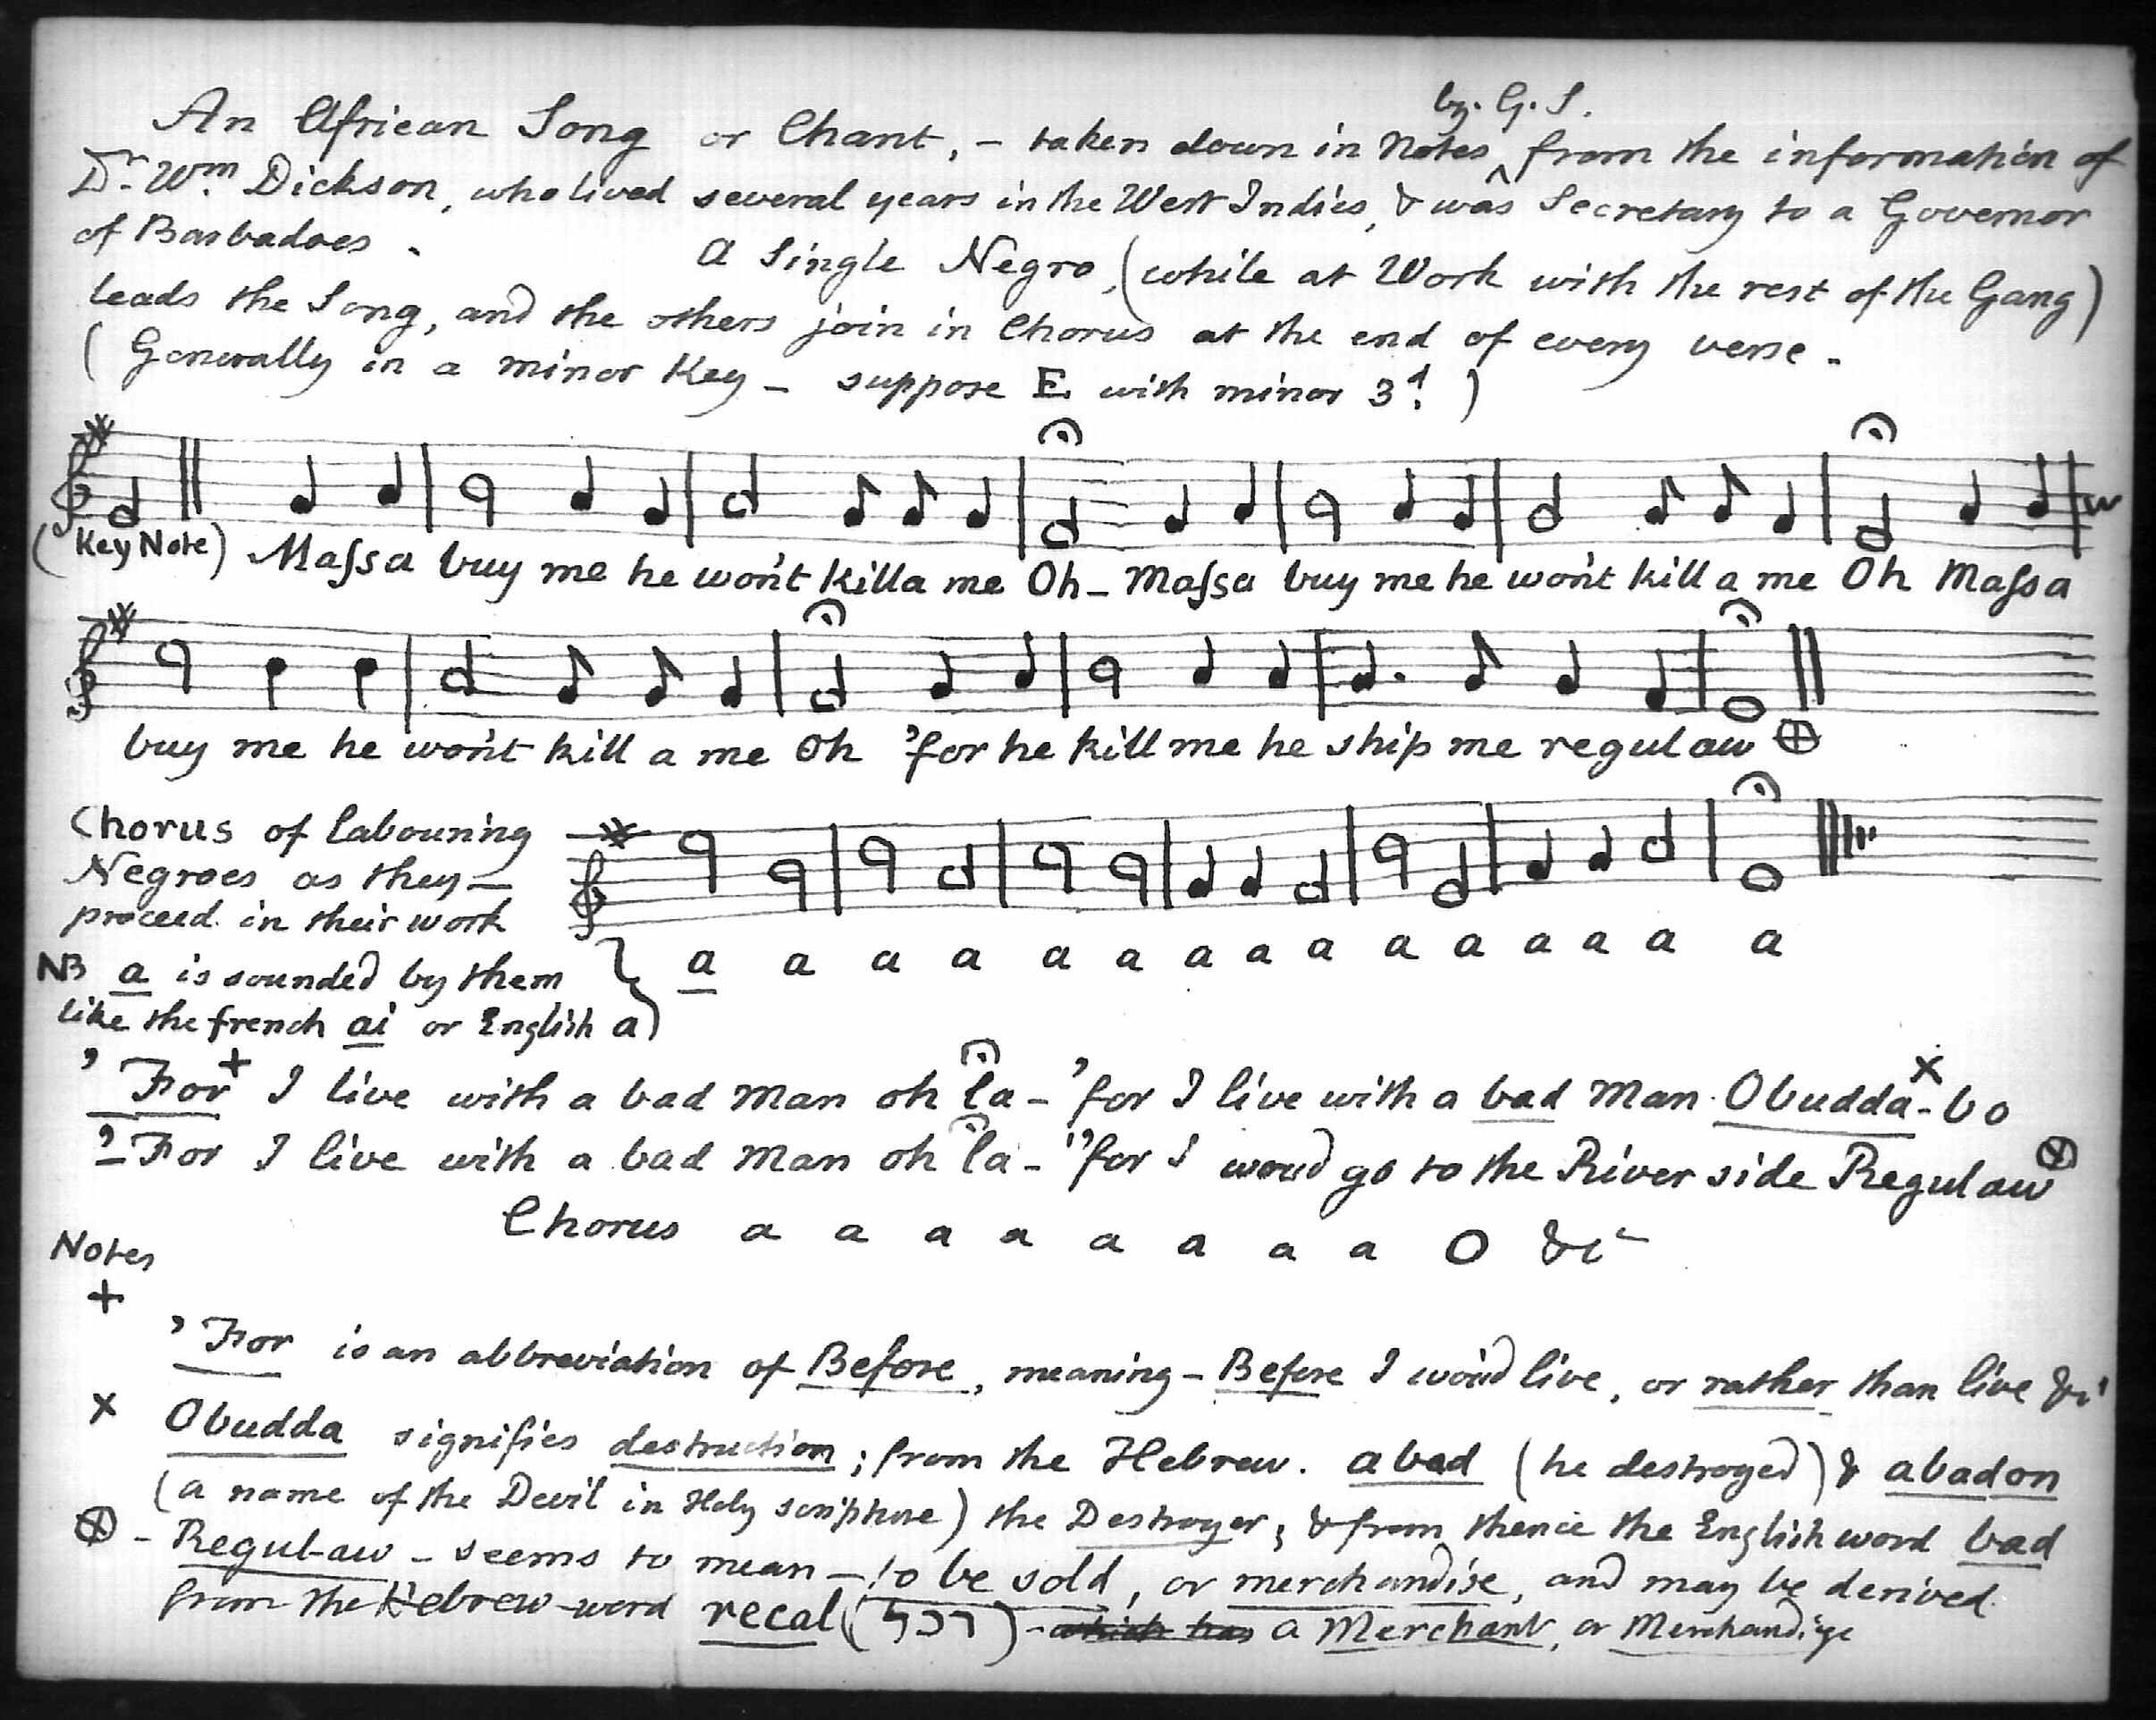 by. G. S.
An African Song or Chant, - taken down in Notes ^ from the information of
Dr. Wm. Dickson, who lived several years in the West Indies, & was Secretary to a Governor
of Barbadoes. A Single Negro, (while at Work with the rest of the Gang)
leads the Song, and the others join in Chorus at the end of every verse.
(Generally in a minor Key - suppose E with minor 3d.)
(Key Note) Maſsa buy me he won't killa me Oh - Maſsa buy me he won't kill a me Oh Maſsa
buy me he won't kill a me Oh 'for he kill me he ship me regulaw ⊕
Chorus of labouring
Negroes as they -
proceed in their work
a a a a a a a a a a a a a a a
NB a is sounded by them
like the french ai or English a)
'For+ I live with a bad man oh la - 'for I live with a bad Man Obudda×-bo
'For I live with a bad man oh la - 'for I woud go to the River side Regulaw ⊗
Chorus a a a a a a a a O &c
Notes
+
'For is an abbreviation of Before, meaning - Before I wou'd live, or rather than live &c
× Obudda signifies destruction; from the Hebrew. abad (he destroyed) & abadon
(a name of the Devil in Holy scripture) the Destroyer; & from thence the English word bad
⊗ - Regul-aw - seems to mean - to be sold, or merchandise, and may be derived
from the Hebrew word recal (רכל) - which has a Merchant, or Merchandize